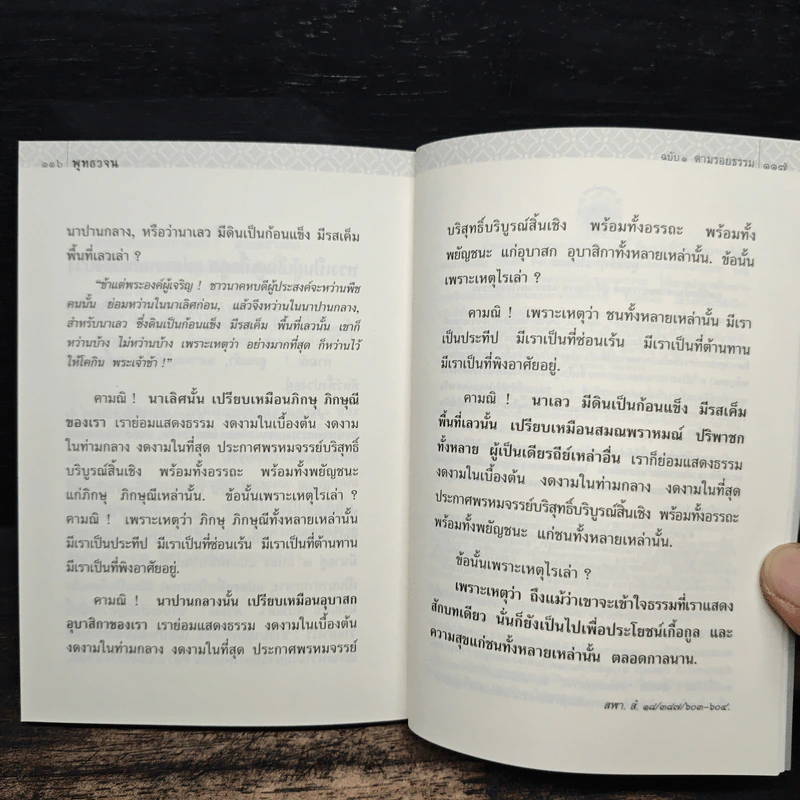 ๑๑๖ พุทธวจน
นาปานกลาง, หรือว่านาเลว มีดินเป็นก้อนแข็ง มีรสเค็ม
พื้นที่เลวเล่า ?
“ข้าแต่พระองค์ผู้เจริญ ! ชาวนาคหบดีผู้ประสงค์จะหว่านพืช
คนนั้น ย่อมหว่านในนาเลิศก่อน, แล้วจึงหว่านในนาปานกลาง,
สำหรับนาเลว ซึ่งดินเป็นก้อนแข็ง มีรสเค็ม พื้นที่เลวนั้น เขาก็
หว่านบ้าง ไม่หว่านบ้าง เพราะเหตุว่า อย่างมากที่สุด ก็หว่านไว้
ให้โคกิน พระเจ้าข้า !”
คามณิ ! นาเลิศนั้น เปรียบเหมือนภิกษุ ภิกษุณี
ของเรา เราย่อมแสดงธรรม งดงามในเบื้องต้น งดงาม
ในท่ามกลาง งดงามในที่สุด ประกาศพรหมจรรย์บริสุทธิ์
บริบูรณ์สิ้นเชิง พร้อมทั้งอรรถะ พร้อมทั้งพยัญชนะ
แก่ภิกษุ ภิกษุณีเหล่านั้น. ข้อนั้นเพราะเหตุไรเล่า ?
คามณิ ! เพราะเหตุว่า ภิกษุ ภิกษุณีทั้งหลายเหล่านั้น
มีเราเป็นประทีป มีเราเป็นที่ซ่อนเร้น มีเราเป็นที่ต้านทาน
มีเราเป็นที่พึงอาศัยอยู่.
คามณิ ! นาปานกลางนั้น เปรียบเหมือนอุบาสก
อุบาสิกาของเรา เราย่อมแสดงธรรม งดงามในเบื้องต้น
งดงามในท่ามกลาง งดงามในที่สุด ประกาศพรหมจรรย์
ฉบับ ๑ ตามรอยธรรม ๑๑๗
บริสุทธิ์บริบูรณ์สิ้นเชิง พร้อมทั้งอรรถะ พร้อมทั้ง
พยัญชนะ แก่อุบาสก อุบาสิกาทั้งหลายเหล่านั้น. ข้อนั้น
เพราะเหตุไรเล่า ?
คามณิ ! เพราะเหตุว่า ชนทั้งหลายเหล่านั้น มีเรา
เป็นประทีป มีเราเป็นที่ซ่อนเร้น มีเราเป็นที่ต้านทาน
มีเราเป็นที่พึงอาศัยอยู่.
คามณิ ! นาเลว มีดินเป็นก้อนแข็ง มีรสเค็ม
พื้นที่เลวนั้น เปรียบเหมือนสมณพราหมณ์ ปริพาชก
ทั้งหลาย ผู้เป็นเดียรถีย์เหล่าอื่น เราก็ย่อมแสดงธรรม
งดงามในเบื้องต้น งดงามในท่ามกลาง งดงามในที่สุด
ประกาศพรหมจรรย์บริสุทธิ์บริบูรณ์สิ้นเชิง พร้อมทั้งอรรถะ
พร้อมทั้งพยัญชนะ แก่ชนทั้งหลายเหล่านั้น.
ข้อนั้นเพราะเหตุไรเล่า ?
เพราะเหตุว่า ถึงแม้ว่าเขาจะเข้าใจธรรมที่เราแสดง
สักบทเดียว นั่นก็ยังเป็นไปเพื่อประโยชน์เกื้อกูล และ
ความสุขแก่ชนทั้งหลายเหล่านั้น ตลอดกาลนาน.
สฬา. สํ. ๑๘/๓๘๗/๖๐๓-๖๐๔.